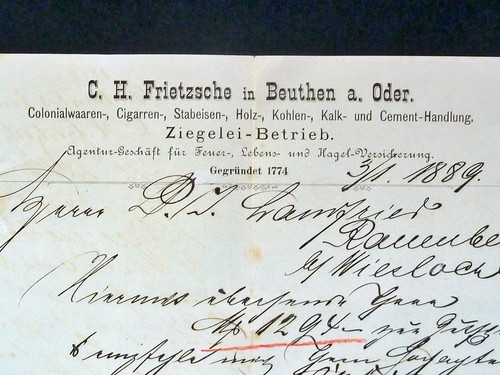 C. H. Frietzsche in Beuthen a. Oder.
Colonialwaaren-, Cigarren-, Stabeisen-, Holz-, Kohlen-, Kalk- und Cement-Handlung.
Ziegelei-Betrieb.
Agentur-Geschäft für Feuer-, Lebens- und Hagel-Versicherung.
Gegründet 1774
3/1. 1889.
Herrn Landfried
Rauenbe
b/ Wiesloch
Hiermit übersende Ihnen
M 1294-
empfehle mich Ihnen